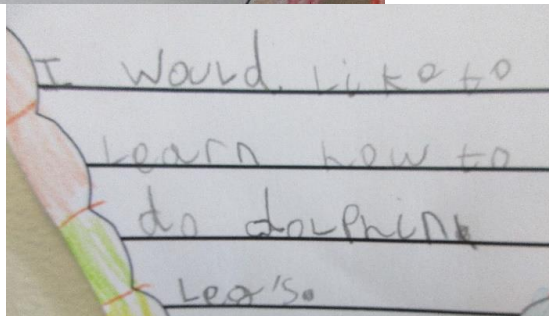 I would. Like to
Learn how to
do dolphin
Leg's.